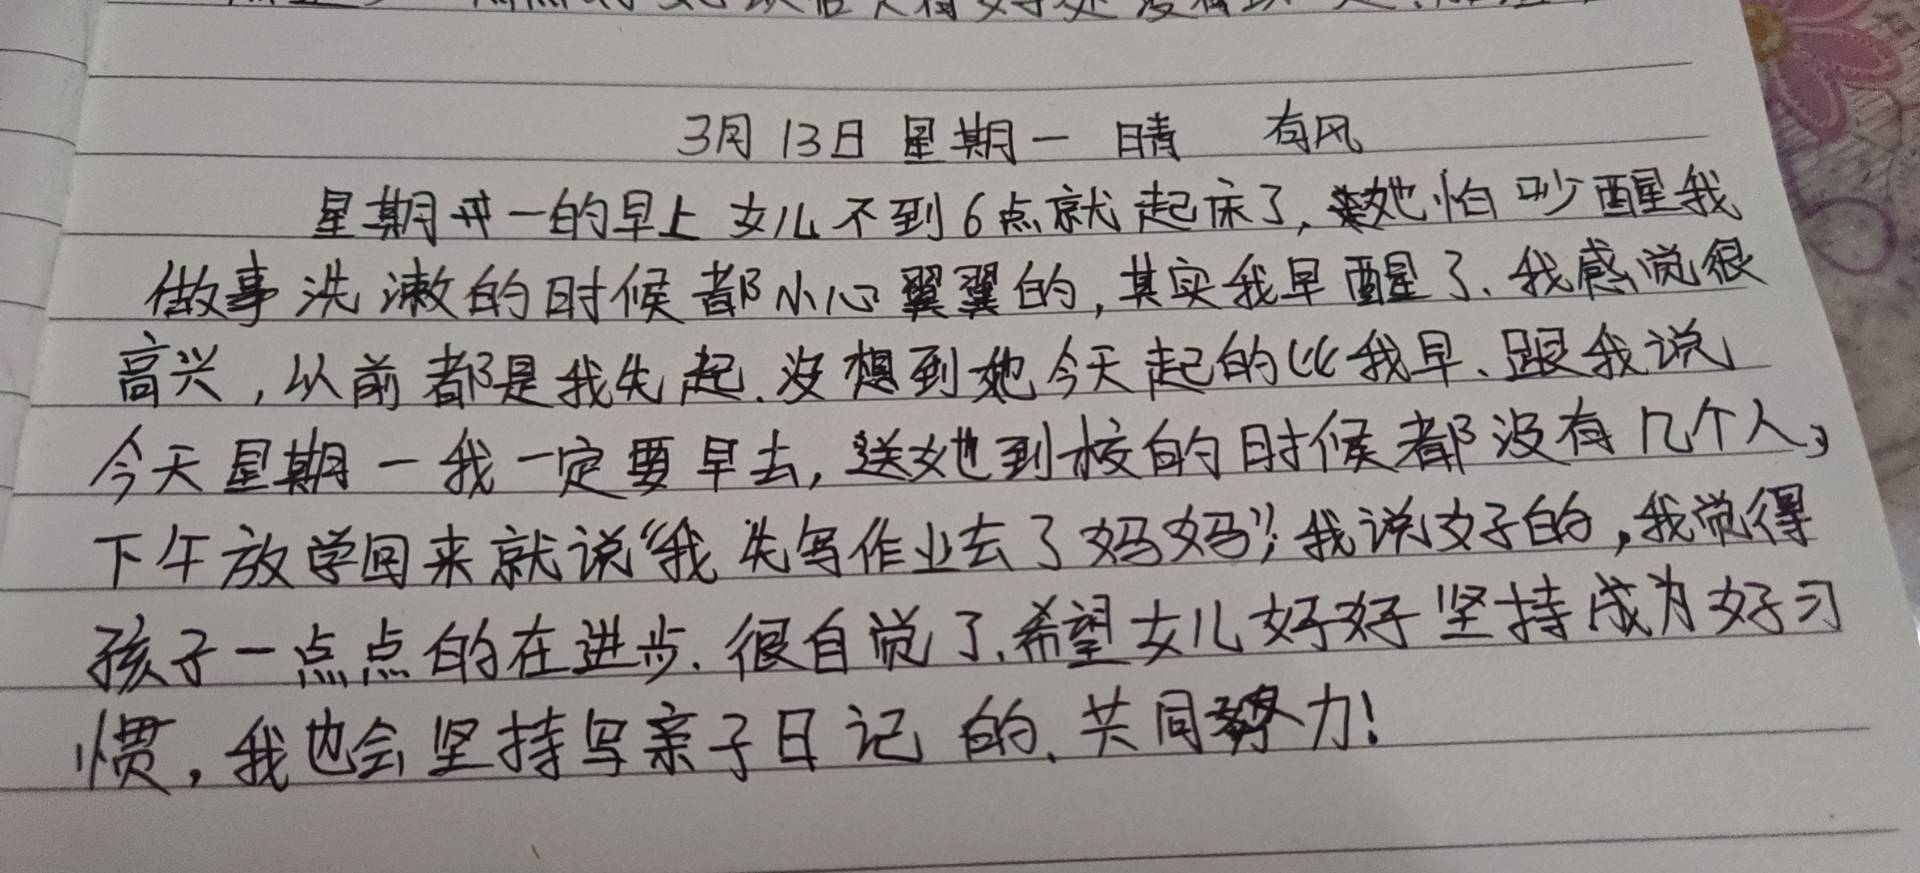 3月13日 星期一 晴 有风
星期一的早上女儿不到6点就起床了,她怕吵醒我
做事洗漱的时候都小心翼翼的,其实我早醒了、我感觉很
高兴,以前都是我先起.没想到她今天起的比我早、跟我说
今天星期一我一定要早去,送她到校的时候都没有几个人,
下午放学回来就说“我先写作业去了妈妈”,我说好的,我觉得
孩子一点点的在进步.很自觉了.希望女儿好好坚持成为好习
惯,我也会坚持写亲子日记的.共同努力!